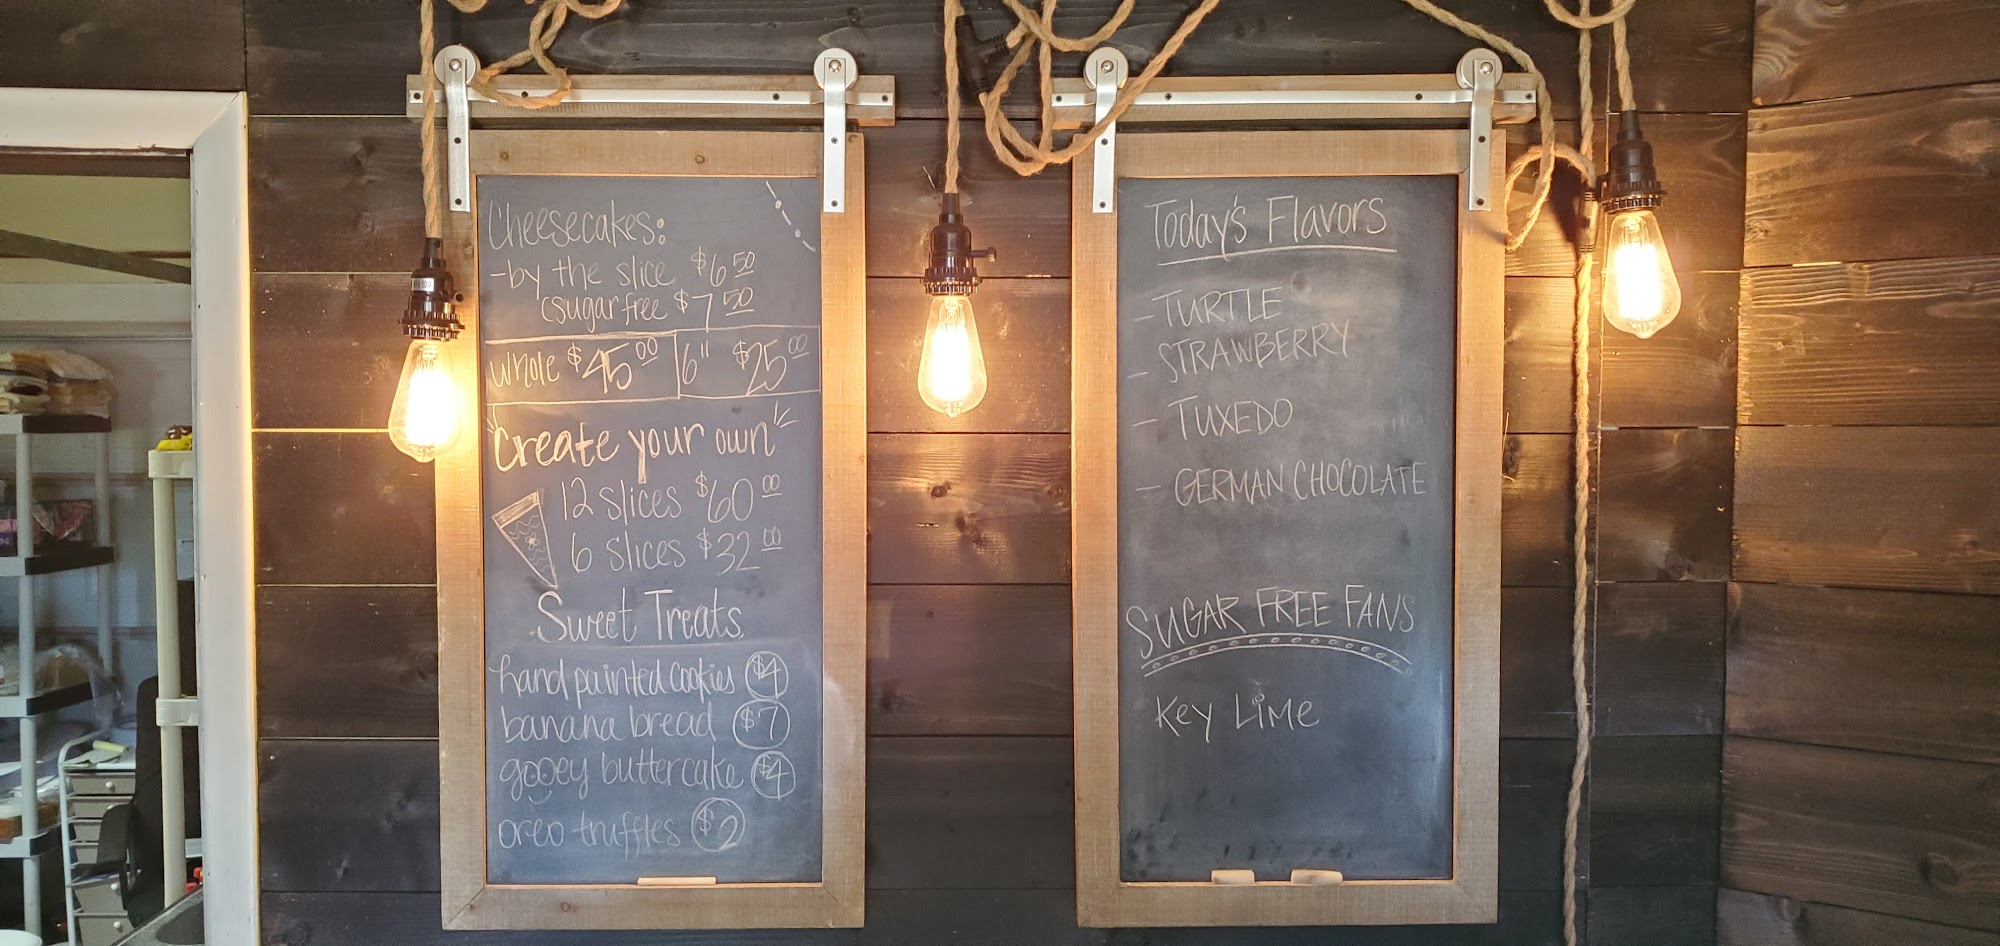 Cheesecakes:
- by the slice $6 50
(sugar free $7 50
whole $45 00 6" $25 00
"Create your own"
12 slices $60 00
6 slices $32 00
Sweet Treats
hand painted cookies $4
banana bread $7
gooey buttercake $4
oreo truffles $2
Today's Flavors
- TURTLE
- STRAWBERRY
- TUXEDO
- GERMAN CHOCOLATE
SUGAR FREE FANS
Key Lime